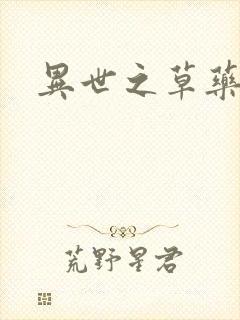 異世之草藥
荒野星君